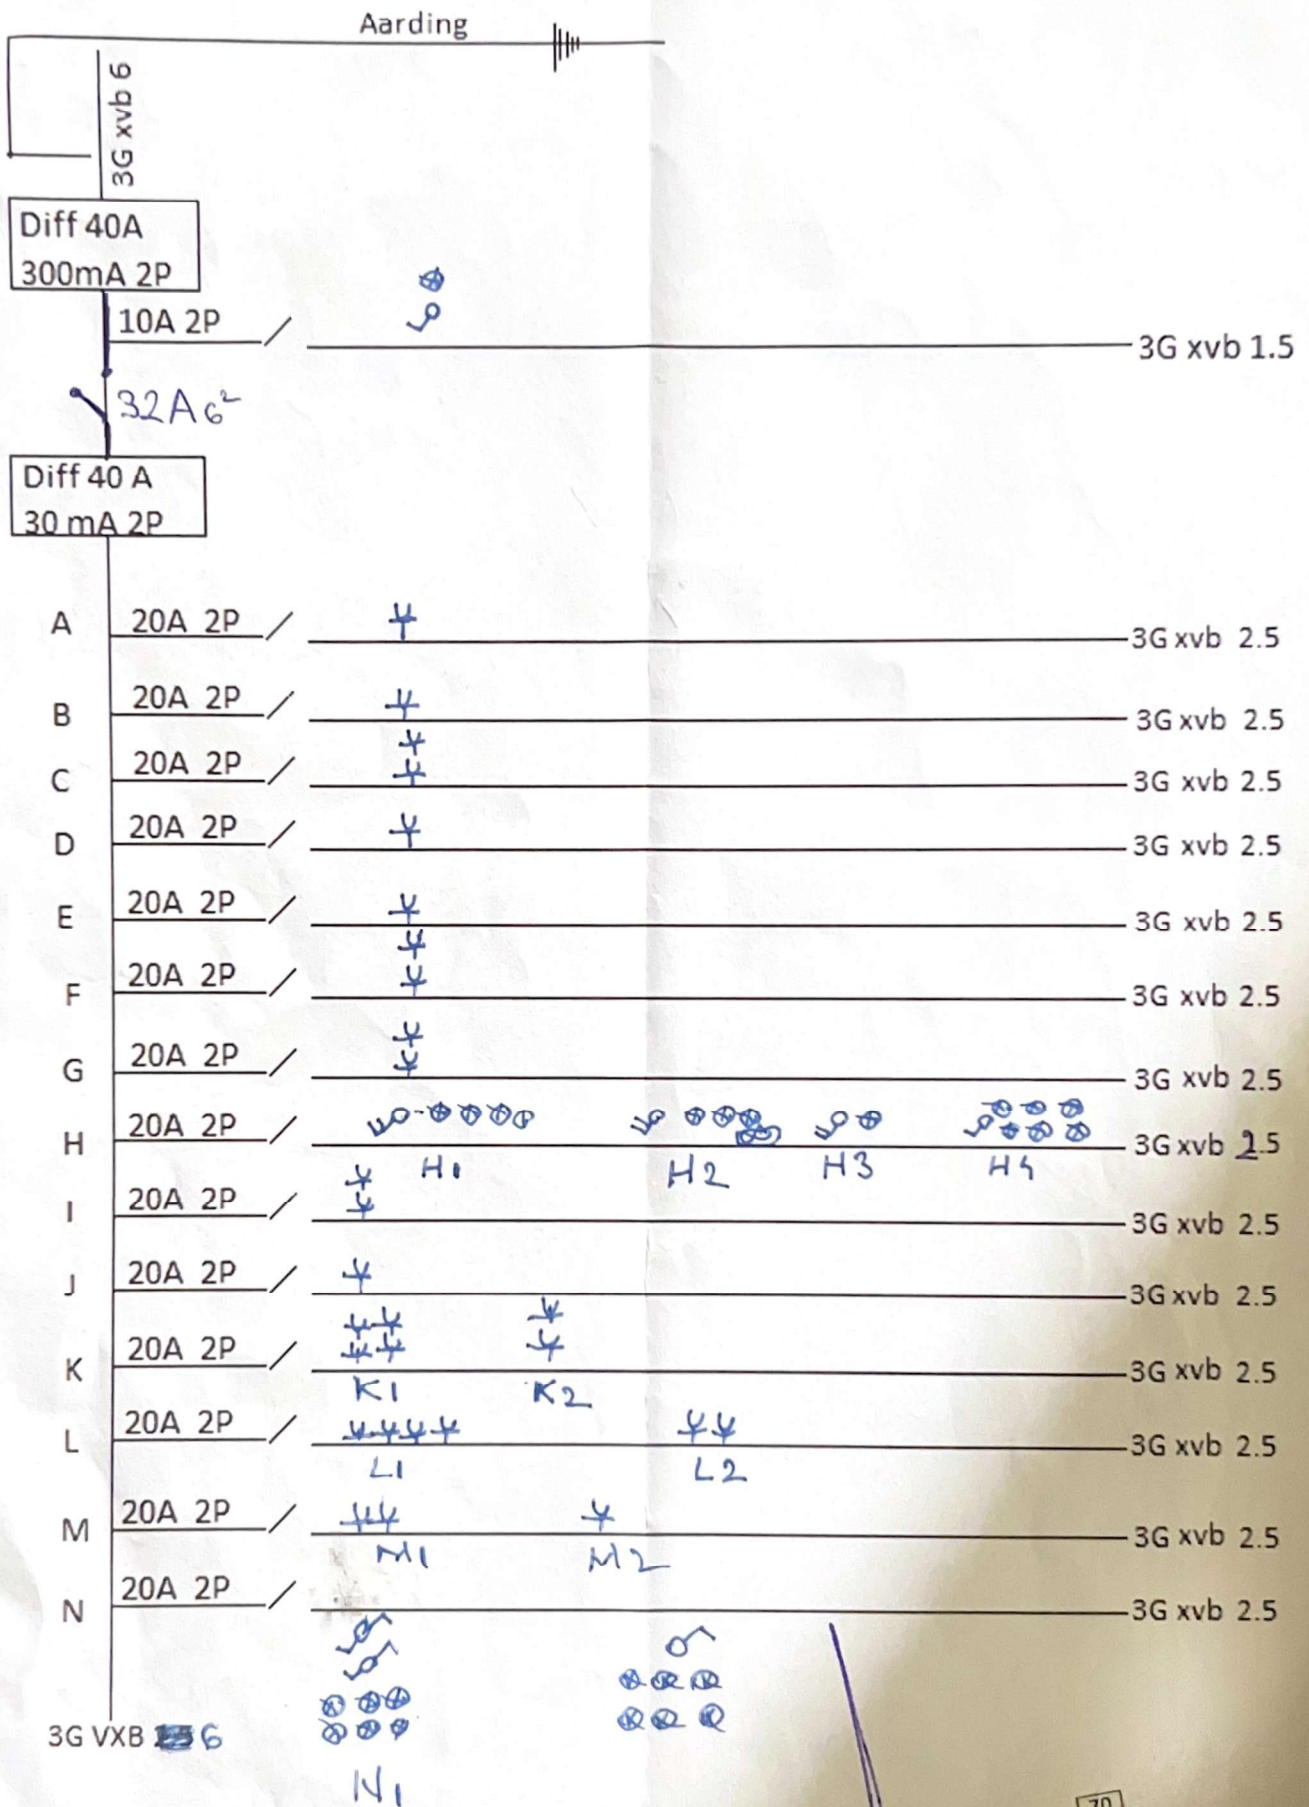 Aarding
3G xvb 6
Diff 40A
300mA 2P
10A 2P
3G xvb 1.5
32A 6²
Diff 40 A
30 mA 2P
A 20A 2P 3G xvb 2.5
B 20A 2P 3G xvb 2.5
C 20A 2P 3G xvb 2.5
D 20A 2P 3G xvb 2.5
E 20A 2P 3G xvb 2.5
F 20A 2P 3G xvb 2.5
G 20A 2P 3G xvb 2.5
H 20A 2P 3G xvb 2.5
H1 H2 H3 H4
I 20A 2P 3G xvb 2.5
J 20A 2P 3G xvb 2.5
K 20A 2P 3G xvb 2.5
K1 K2
L 20A 2P 3G xvb 2.5
L1 L2
M 20A 2P 3G xvb 2.5
M1 M2
N 20A 2P 3G xvb 2.5
3G VXB 6
N1